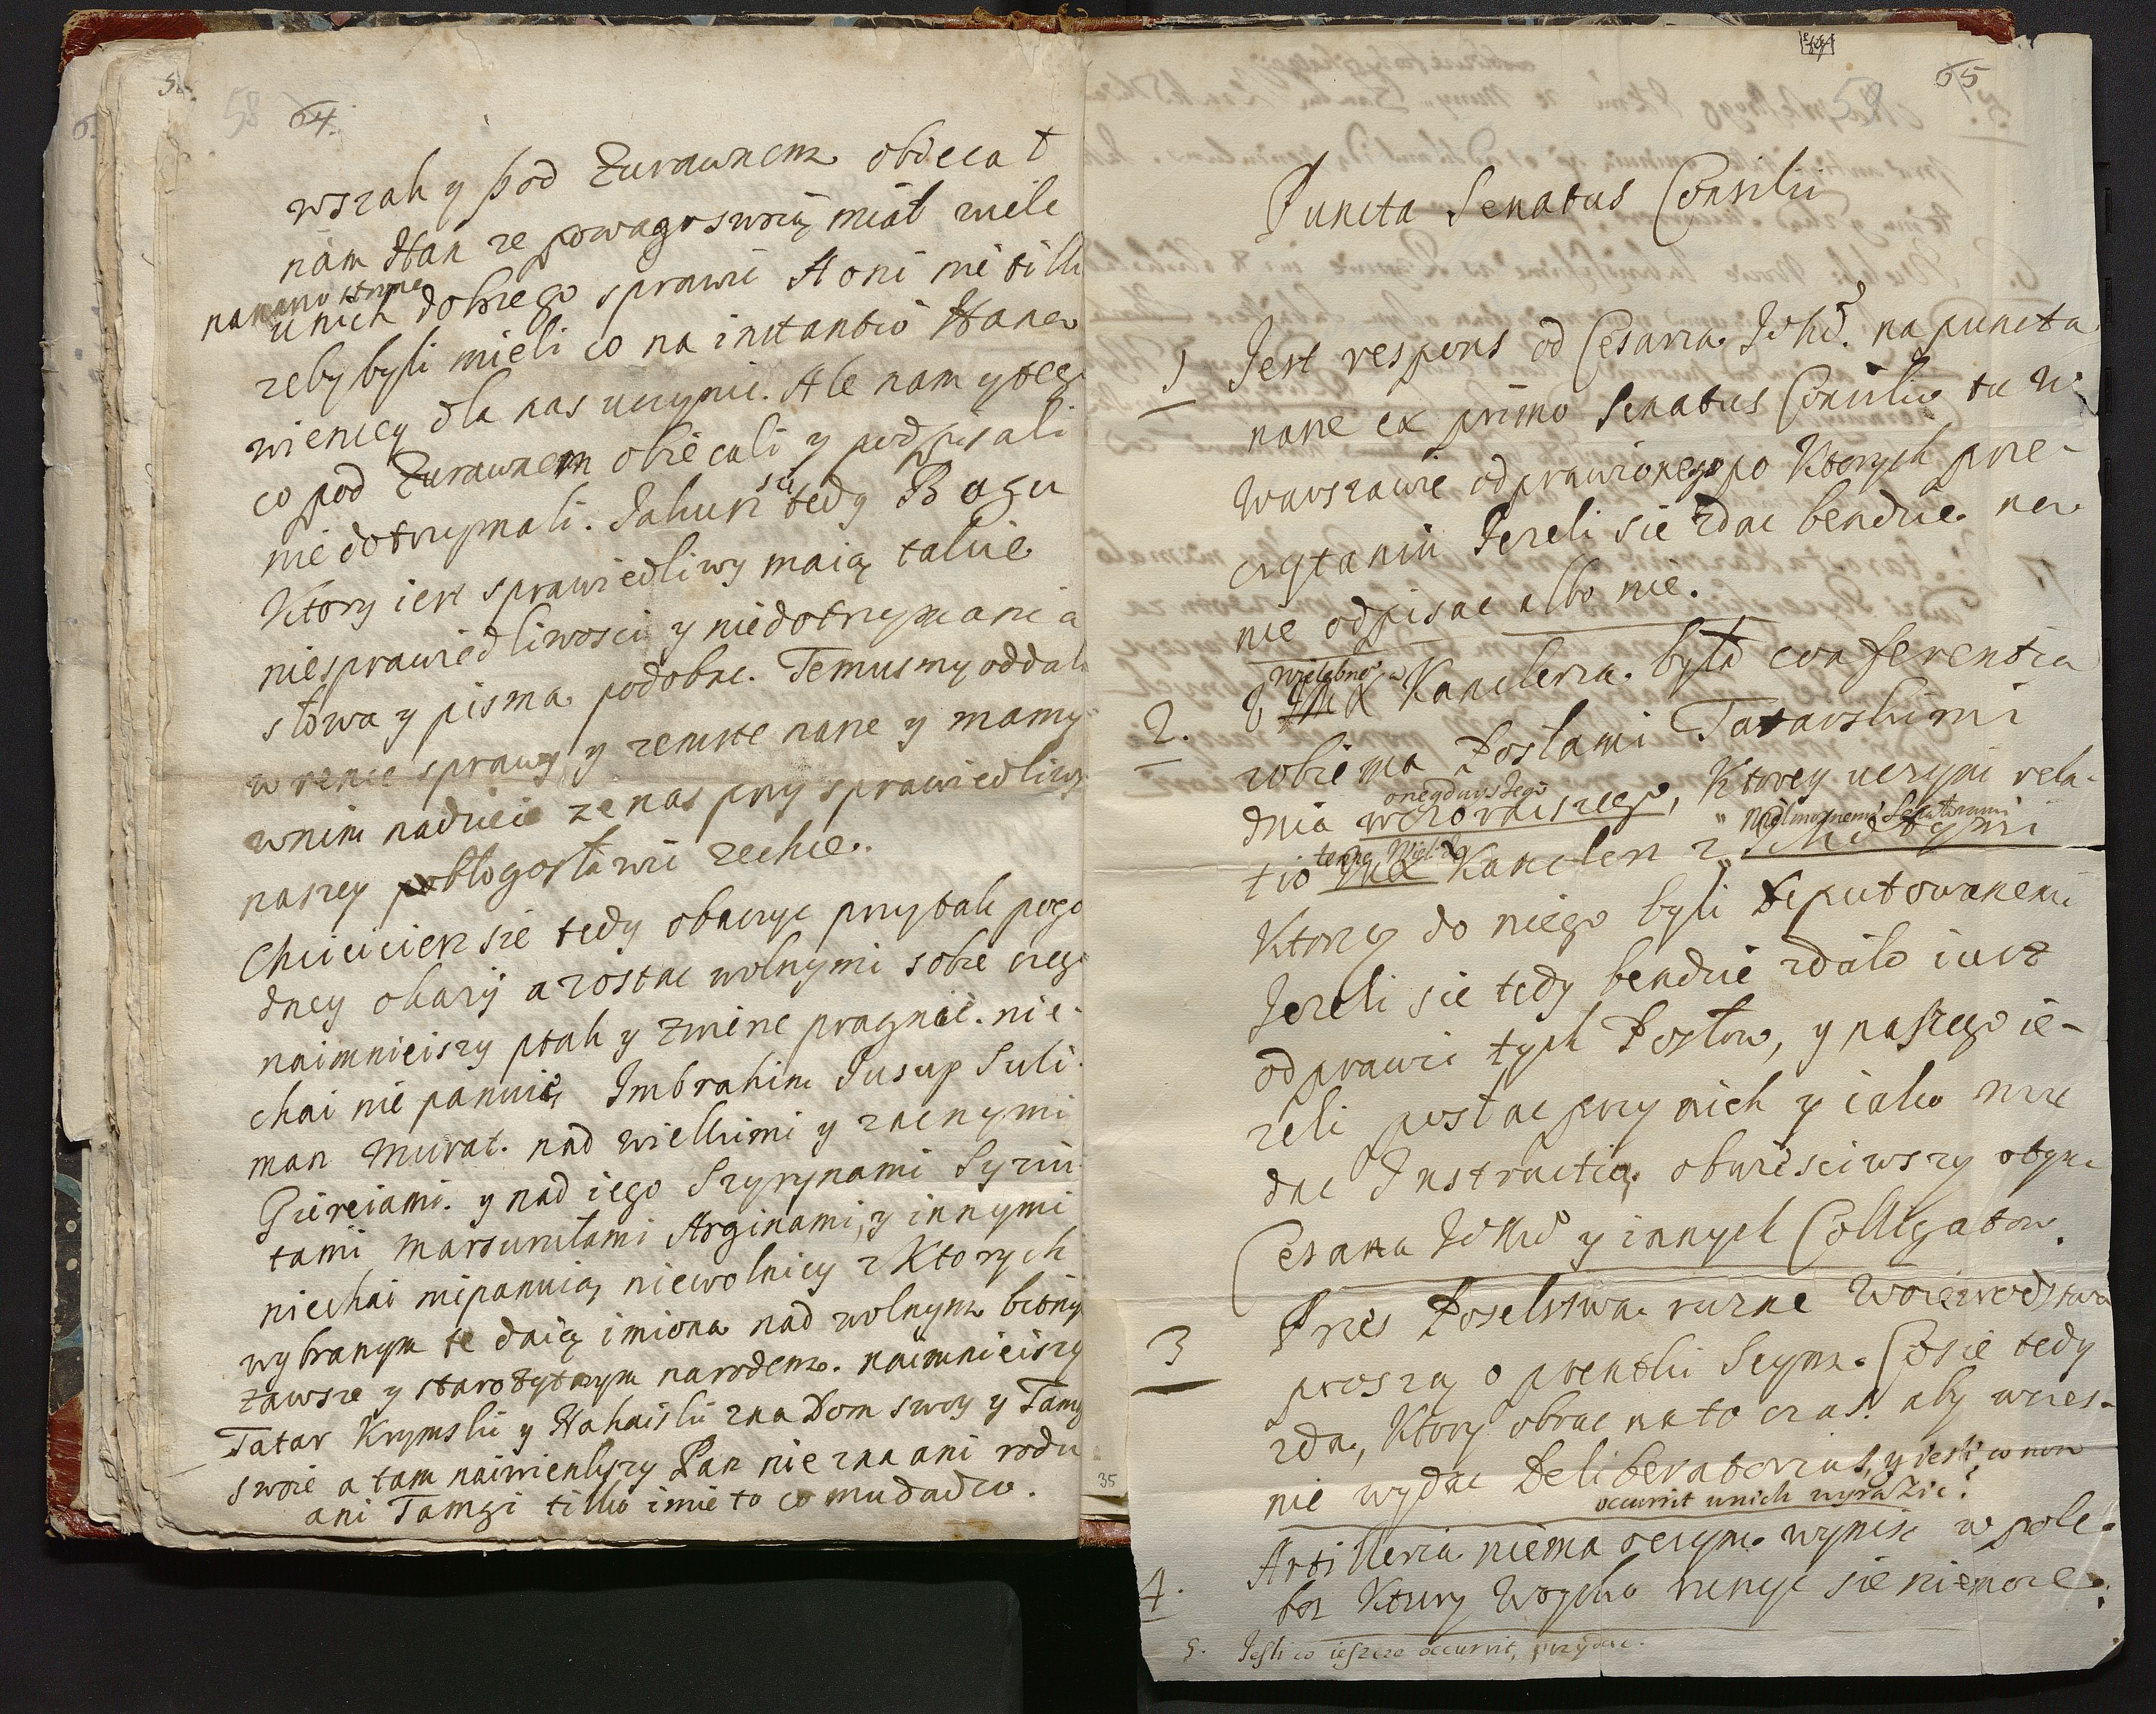 58 64.
wszak y pod Zurawnem obiecał
nam Han ze powago swoią miał wiele
nanano strone
u nich dobrego sprawic A oni nie tilko
zeby byli mieli co na instantio Hana
wiencey dla nas uczynic. Ale nam y tego
co pod Zurawnem obiecali y podpisali
nie dotrzymali. Jakusz sie tedy Bogu
Ktory iest sprawiedliwy maią takie
niesprawiedliwosci y niedotrzymania
słowa y pisma podobac. Temusmy oddali
w rence sprawy y zemste nasze y mamy
wnim nadzieie ze nas przy sprawiedliwy
naszey pobłogosławic zechce.
Chciciesz sie tedy obaczyc przy tak pogo
dney okazij a zostac wolnymi sobie czego
naimnieiszy ptak y zwirze pragnie. nie-
chai nie panuią Imbrahim Jusup Suli-
man Murat. nad wielkimi y zacnymi
Giereiami. y nad iego Szyrynami Syziu
tami Mansurułami Arginami, y innymi
niechai niepanuią niewolnicy z Ktorych
wybranym te daią imiona nad wolnym bitnym
zawsze y starozytnym narodem. naimnieiszy
Tatar Krymski y Nahaiski zna Dom swoy y Tamge
swoie a tam naiwienkszy Pan nie zna ani rodu
ani Tamgi tilko imie to co mu dadzo.
59 65
Puncta Senatus Consilii
1 Jest respons od Cesarza JoMci. na puncta
nasze ex primo Senatus Consilio tu w
Warszawie odprawionego po Ktorych prze-
czytaniu Jezeli sie zdac bendzie na
nie odpisac albo nie.
wielebnego
2. U JMci Kanclerza. była conferentia
zobiema Posłami Tatarskimi
onegdayszego
dnia wczoraiszego, Ktorey uczyni rela-
tenze Wielebny " Wielmoznemi Senatorami
tio JMci Kanclerz z " JchMciami
Ktorzy do niego byli deputowanemi
Jezeli sie tedy bendzie zdało iusz
odprawic tych Posłow, y naszego ie-
zeli posłac przy nich y iako mu
dac Instructią. obwiesciwszy o tym
Cesarza JoMci y innych Colligatow.
3 Przes Poselstwa rozne Woiewodstwa
proszą o prentki Seym. Co sie tedy
zda, Ktory obrac na to czas. aby wczes-
nie wydac Deliberatorias, y iesli co non
occurrit unich wyrazic?
4. Artilleria niema oczym wynisc w pole.
bez Ktury Woysko ruszyc sie niemoze.
5. Jesli co ieszcze occurrit, przydac.
35